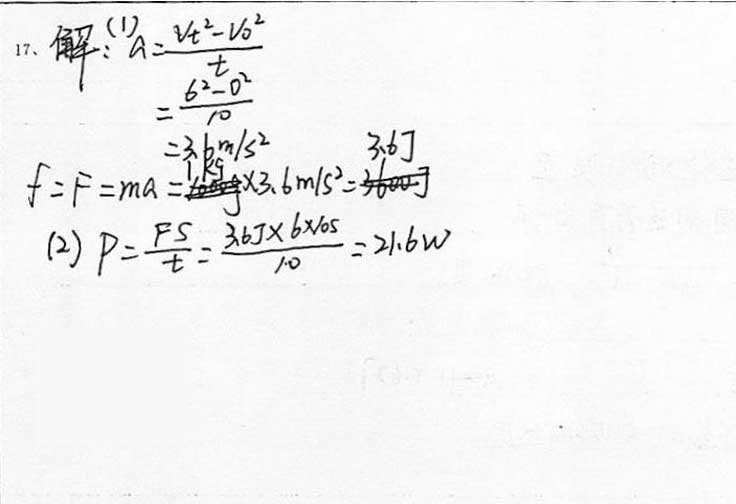 17、解：(1) a=\frac{Vt²-V₀²}{t}
=\frac{6²-0²}{10}
=3.6m/s²
f=F=ma=1kg×3.6m/s²=3.6J
(2) P=\frac{FS}{t}=\frac{3.6J×6×10s}{10}=21.6W